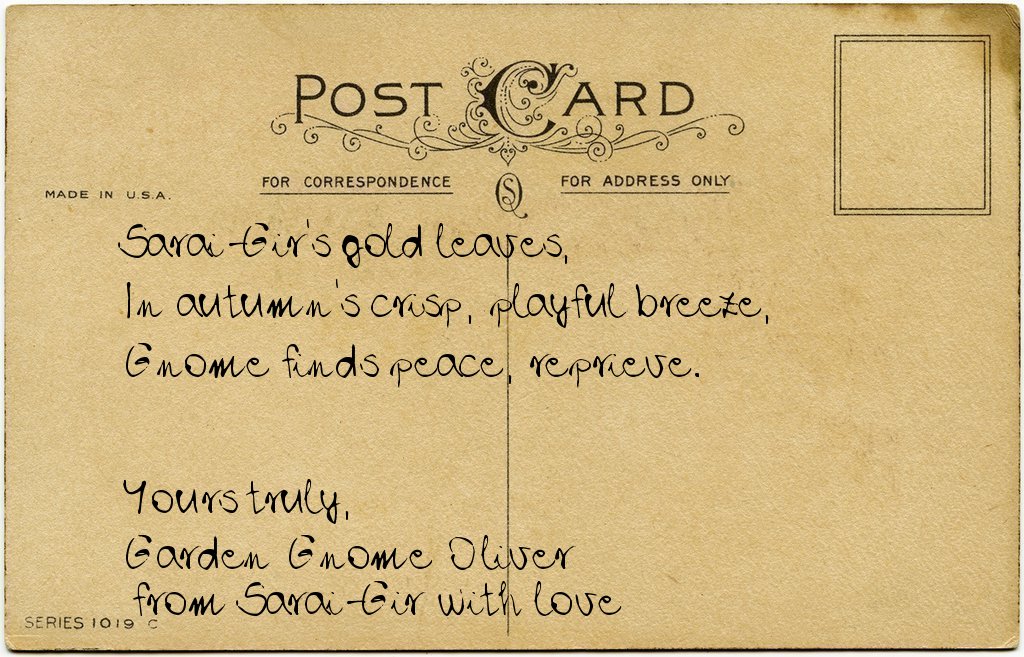 POST CARD
FOR CORRESPONDENCE
FOR ADDRESS ONLY
MADE IN U.S.A.
Sarai-Gir's gold leaves,
In autumn's crisp, playful breeze,
Gnome finds peace, reprieve.
Yours truly,
Garden Gnome Oliver
from Sarai-Gir with love
SERIES 1019 C